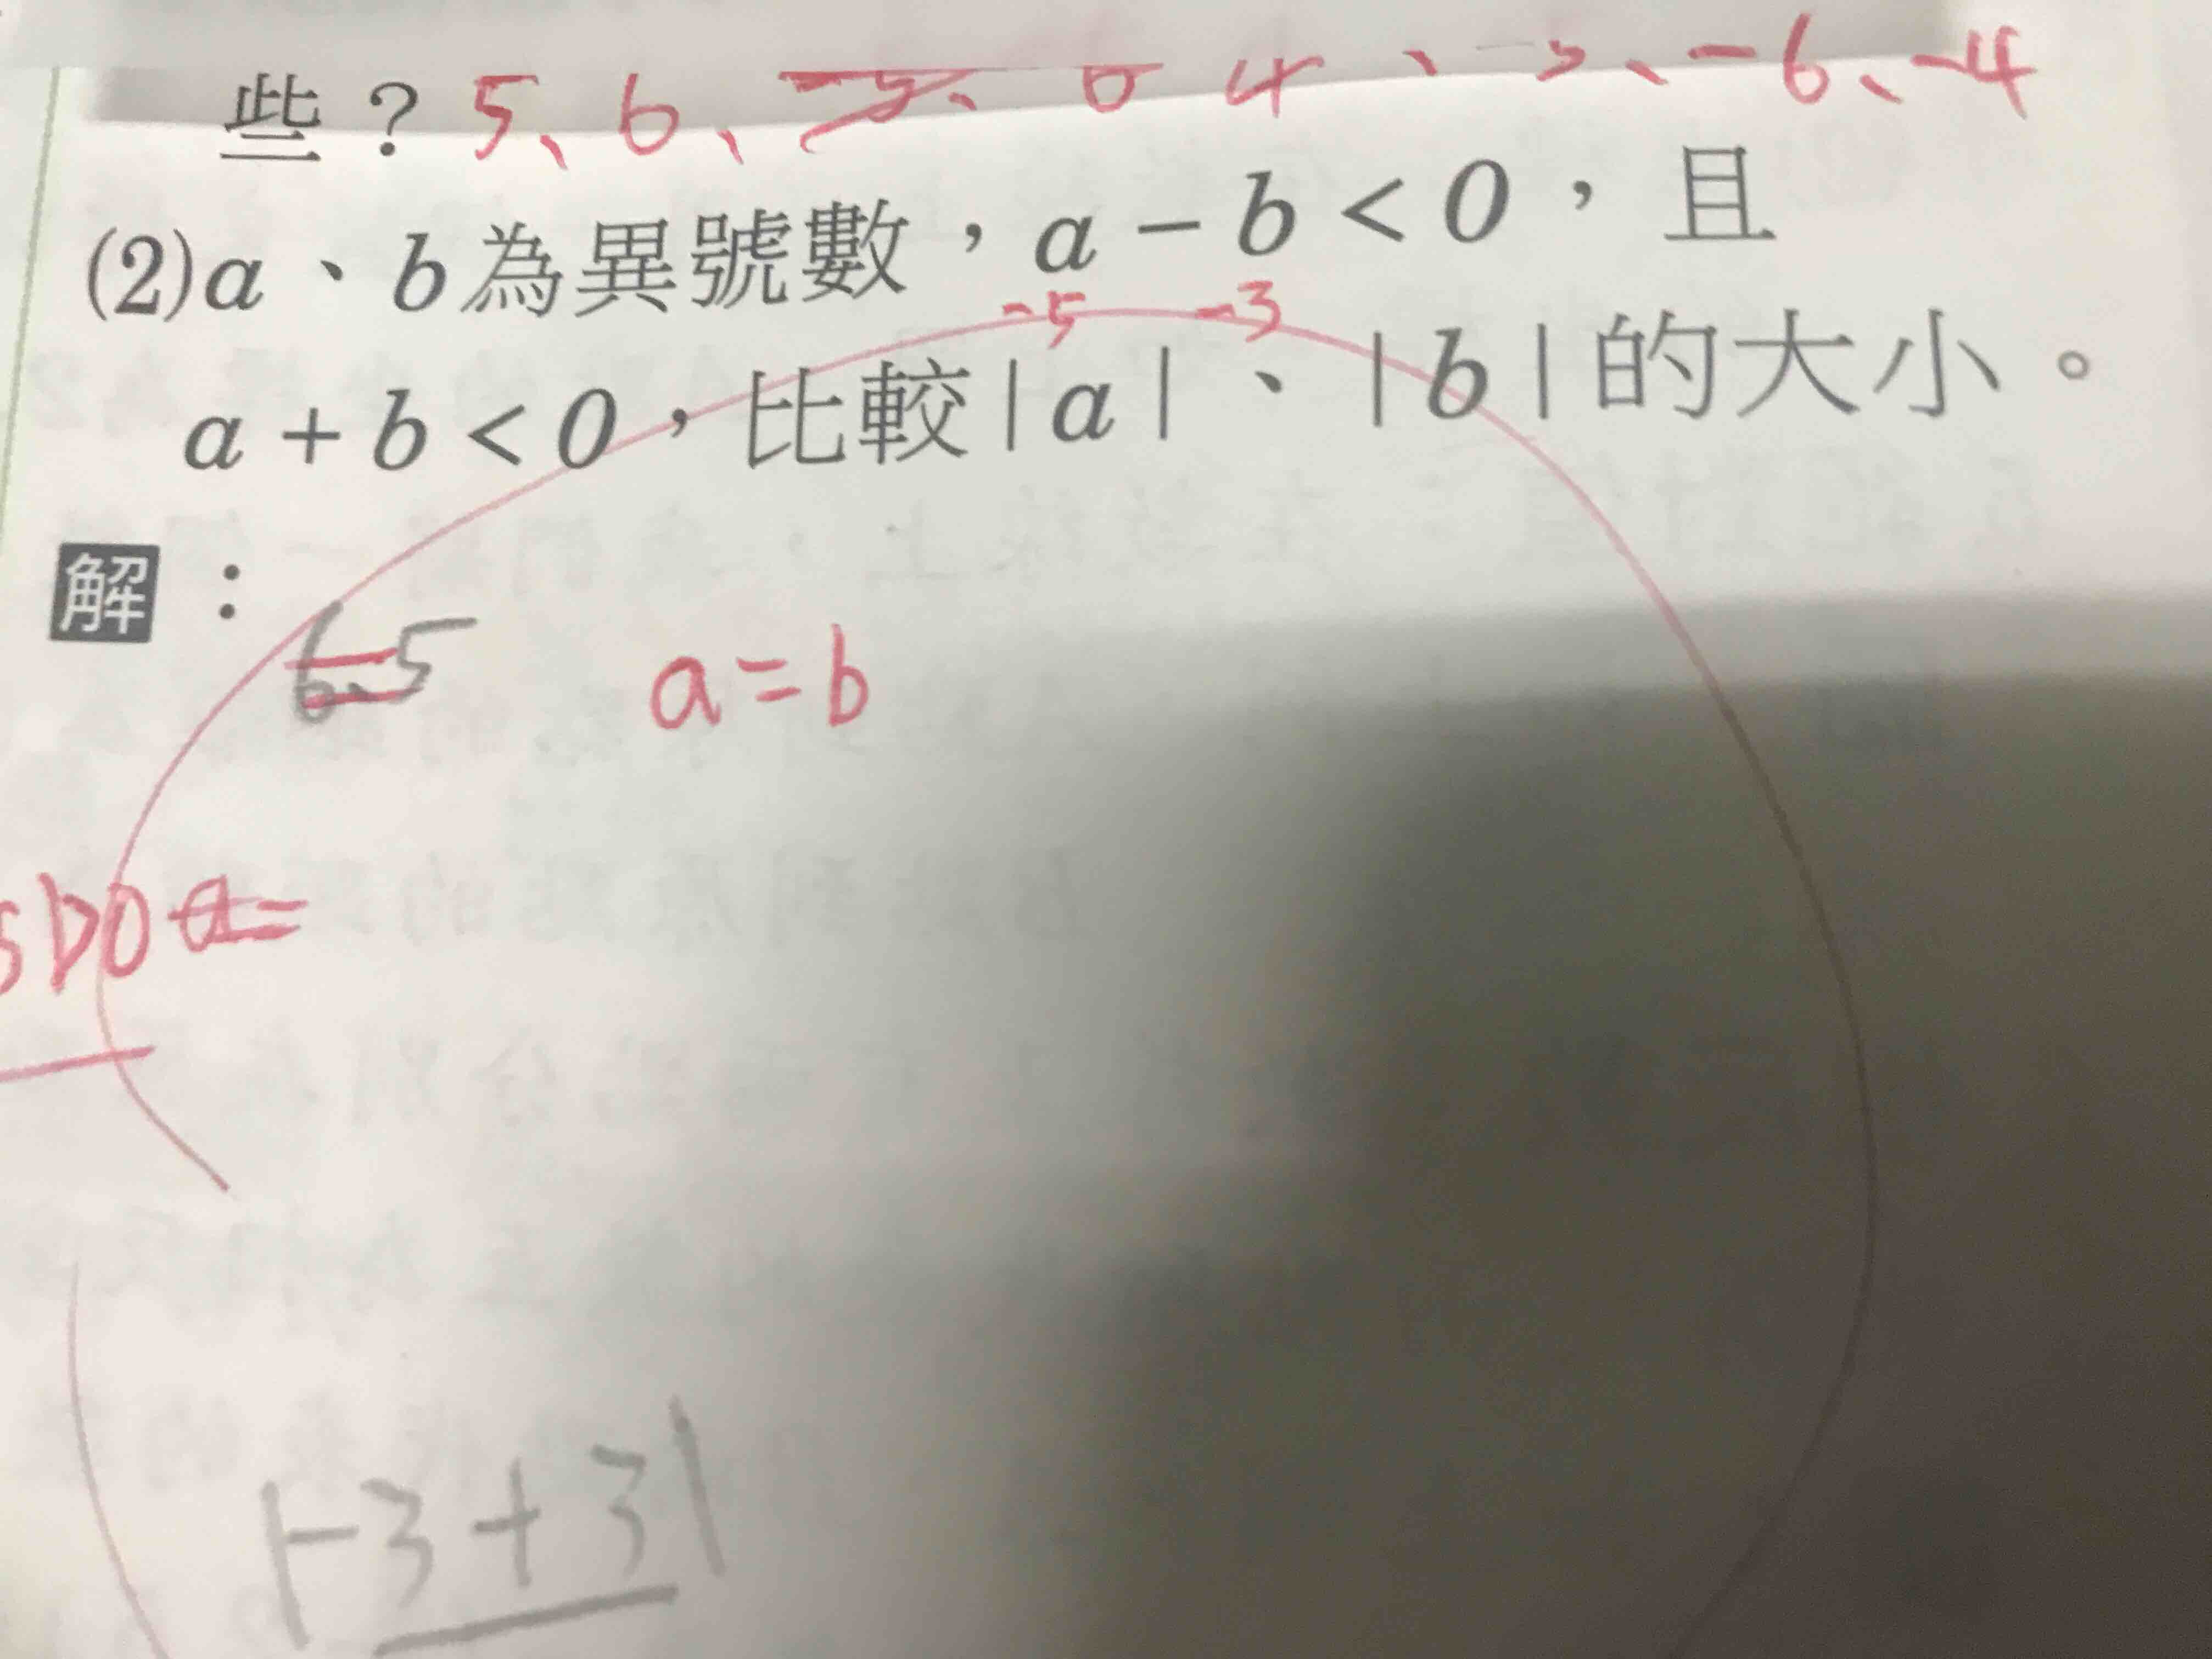 些？5、6、 4、 、-6、-4
(2)a、b為異號數，a－b＜0，且
-5 -3
a＋b＜0，比較|a|、|b|的大小。
解：
6、5 a=b
a=
|-3+3|